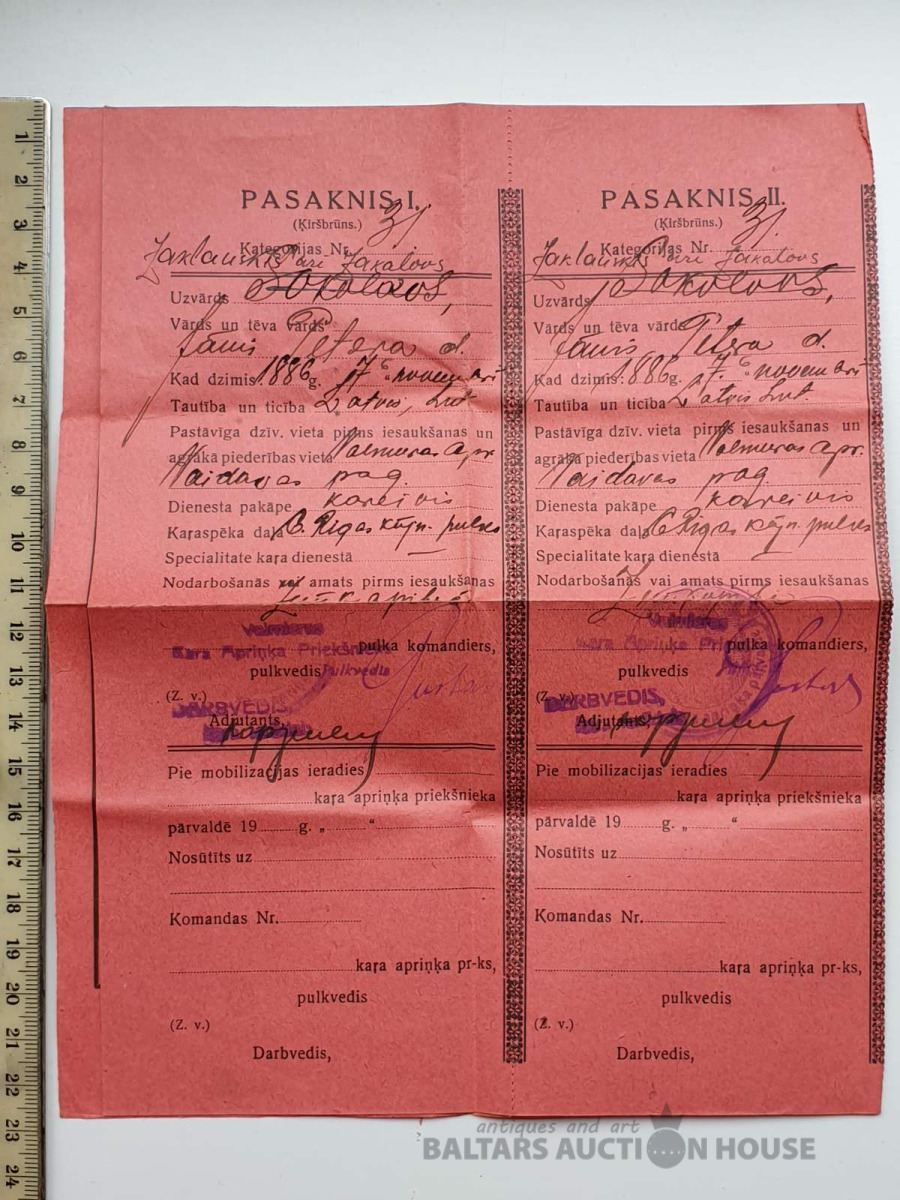 PASAKNIS I.
(Ķiršbrūns.)
Kategorijas Nr. 31.
Uzvārds Sokolovs,
Vārds un tēva vārds
Jānis Pētera d.
Kad dzimis: 1886 g. 17. novembrī
Tautība un ticība Latvis, Lut.
Pastāvīga dzīv. vieta pirms iesaukšanas un
agrākā piederības vieta Valmieras apr.
Vaidavas pag.
Dienesta pakāpe kareivis
Kaŗaspēka daļa 6. Rigas kājn. pulks
Specialitate kaŗa dienestā —
Nodarbošanās vai amats pirms iesaukšanas
Valmieras
Kara Apriņķa Priekšnieks
pulka komandiers,
pulkvedis Pulkvedis
(Z. v.)
DARBVEDIS,
Adjutants,
Pie mobilizacijas ieradies
kaŗa apriņķa priekšnieka
pārvaldē 19 g. „ “
Nosūtīts uz
Komandas Nr.
kaŗa apriņķa pr-ks,
pulkvedis
(Z. v.)
Darbvedis,
PASAKNIS II.
(Ķiršbrūns.)
Kategorijas Nr. 31.
Uzvārds Sokolovs,
Vārds un tēva vārds
Jānis Pētera d.
Kad dzimis: 1886 g. 17. novembrī
Tautība un ticība Latvis Lut.
Pastāvīga dzīv. vieta pirms iesaukšanas un
agrākā piederības vieta Valmieras apr.
Vaidavas pag.
Dienesta pakāpe kareivis
Kaŗaspēka daļa 6 Rigas kājn. pulks
Specialitate kaŗa dienestā —
Nodarbošanās vai amats pirms iesaukšanas
Valmieras
Kara Apriņķa
pulka komandiers,
pulkvedis
(Z. v.)
DARBVEDIS,
Adjutants,
Pie mobilizacijas ieradies
kaŗa apriņķa priekšnieka
pārvaldē 19 g. „ “
Nosūtīts uz
Komandas Nr.
kaŗa apriņķa pr-ks,
pulkvedis
(Z. v.)
Darbvedis,
1
2
3
4
5
6
7
8
9
10
11
12
13
14
15
16
17
18
19
20
21
22
23
24
antiques and art
BALTARS AUCTION HOUSE